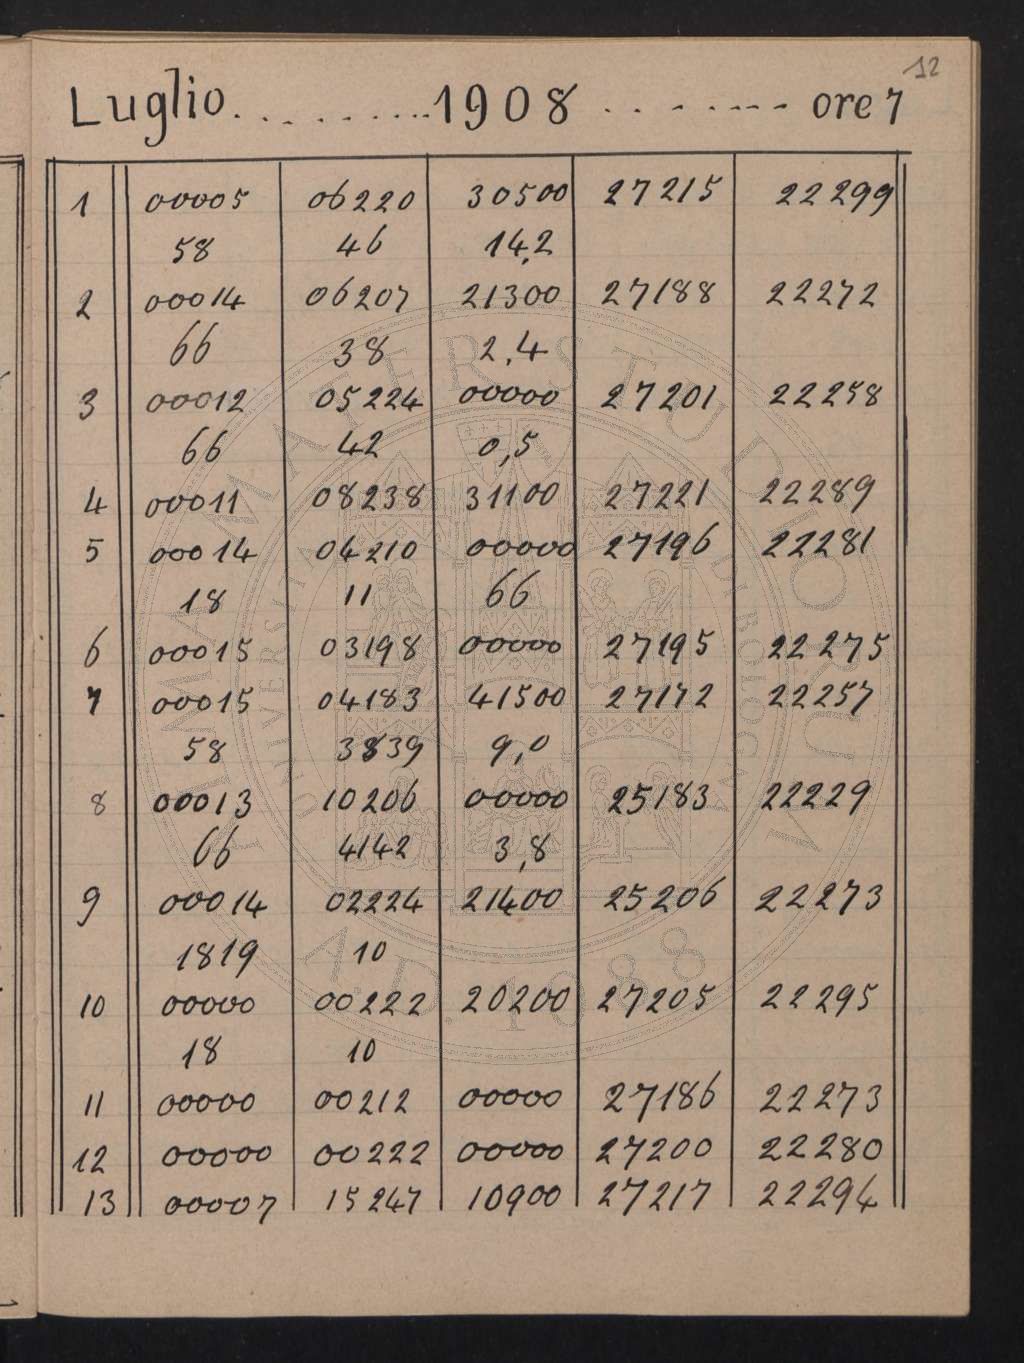 12
Luglio.........1908.......ore 7
1 00005 06220 30500 27215 22299
58 46 14,2
2 00014 06207 21300 27188 22272
66 38 2,4
3 00012 05224 00000 27201 22258
66 42 0,5
4 00011 08238 31100 27221 22289
5 00014 04210 00000 27196 22281
18 11 66
6 00015 03198 00000 27195 22275
7 00015 04183 41500 27172 22257
58 3839 9,0
8 00013 10206 00000 25183 22229
66 4142 3,8
9 00014 02224 21400 25206 22273
1819 10
10 00000 00222 20200 27205 22295
18 10
11 00000 00212 00000 27186 22273
12 00000 00222 00000 27200 22280
13 00007 15247 10900 27217 22294
ALMA MATER STUDIORUM
A.D. 1088